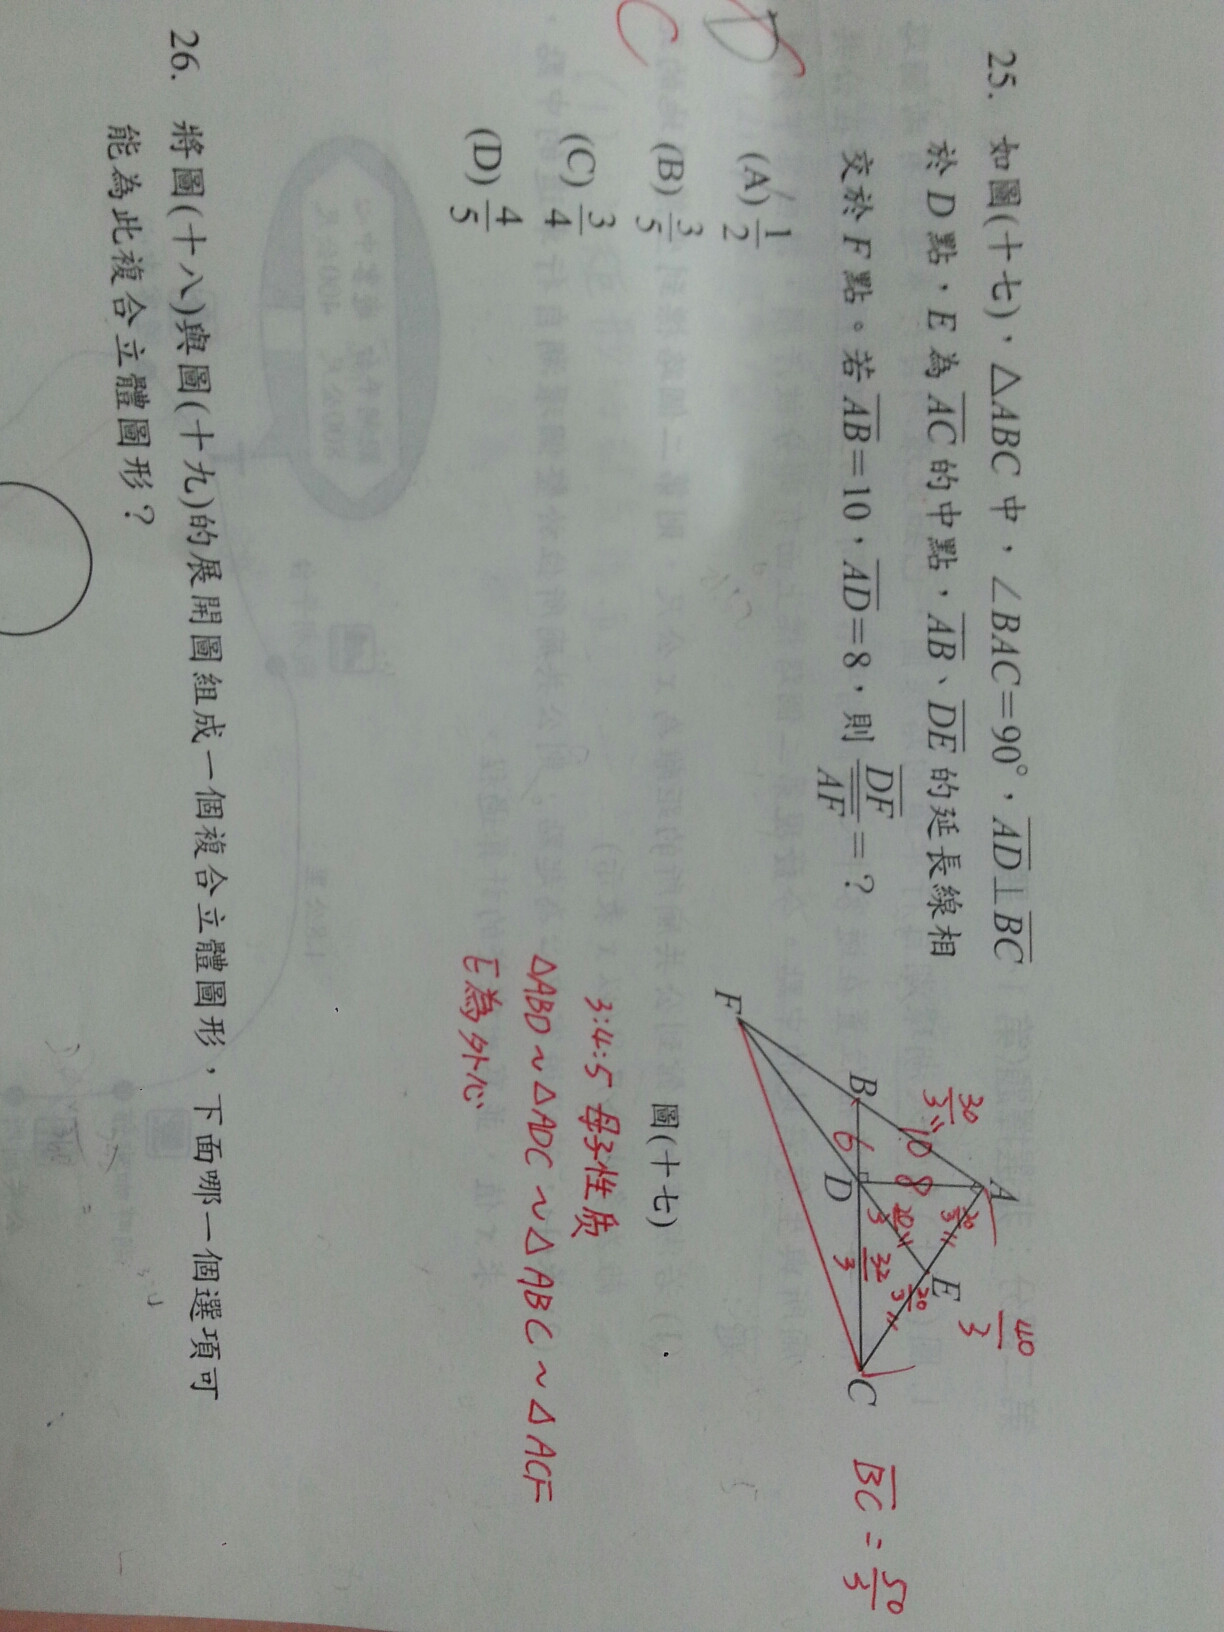 25. 如圖(十七)，△ABC 中，∠BAC=90°，AD⊥BC
於 D 點，E 為 AC 的中點，AB、DE 的延長線相
交於 F 點。若 AB=10，AD=8，則 DF/AF=？
D
C
(A) 1/2
(B) 3/5
(C) 3/4
(D) 4/5
A
30/3
10
8
20/3
E
40/3
B
6
20/3
20/3
D
32/3
C
BC = 50/3
F
圖(十七)
3:4:5 母子性质
△ABD ~ △ADC ~ △ABC ~ △ACF
E為外心
26. 將圖(十八)與圖(十九)的展開圖組成一個複合立體圖形，下面哪一個選項可
能為此複合立體圖形？